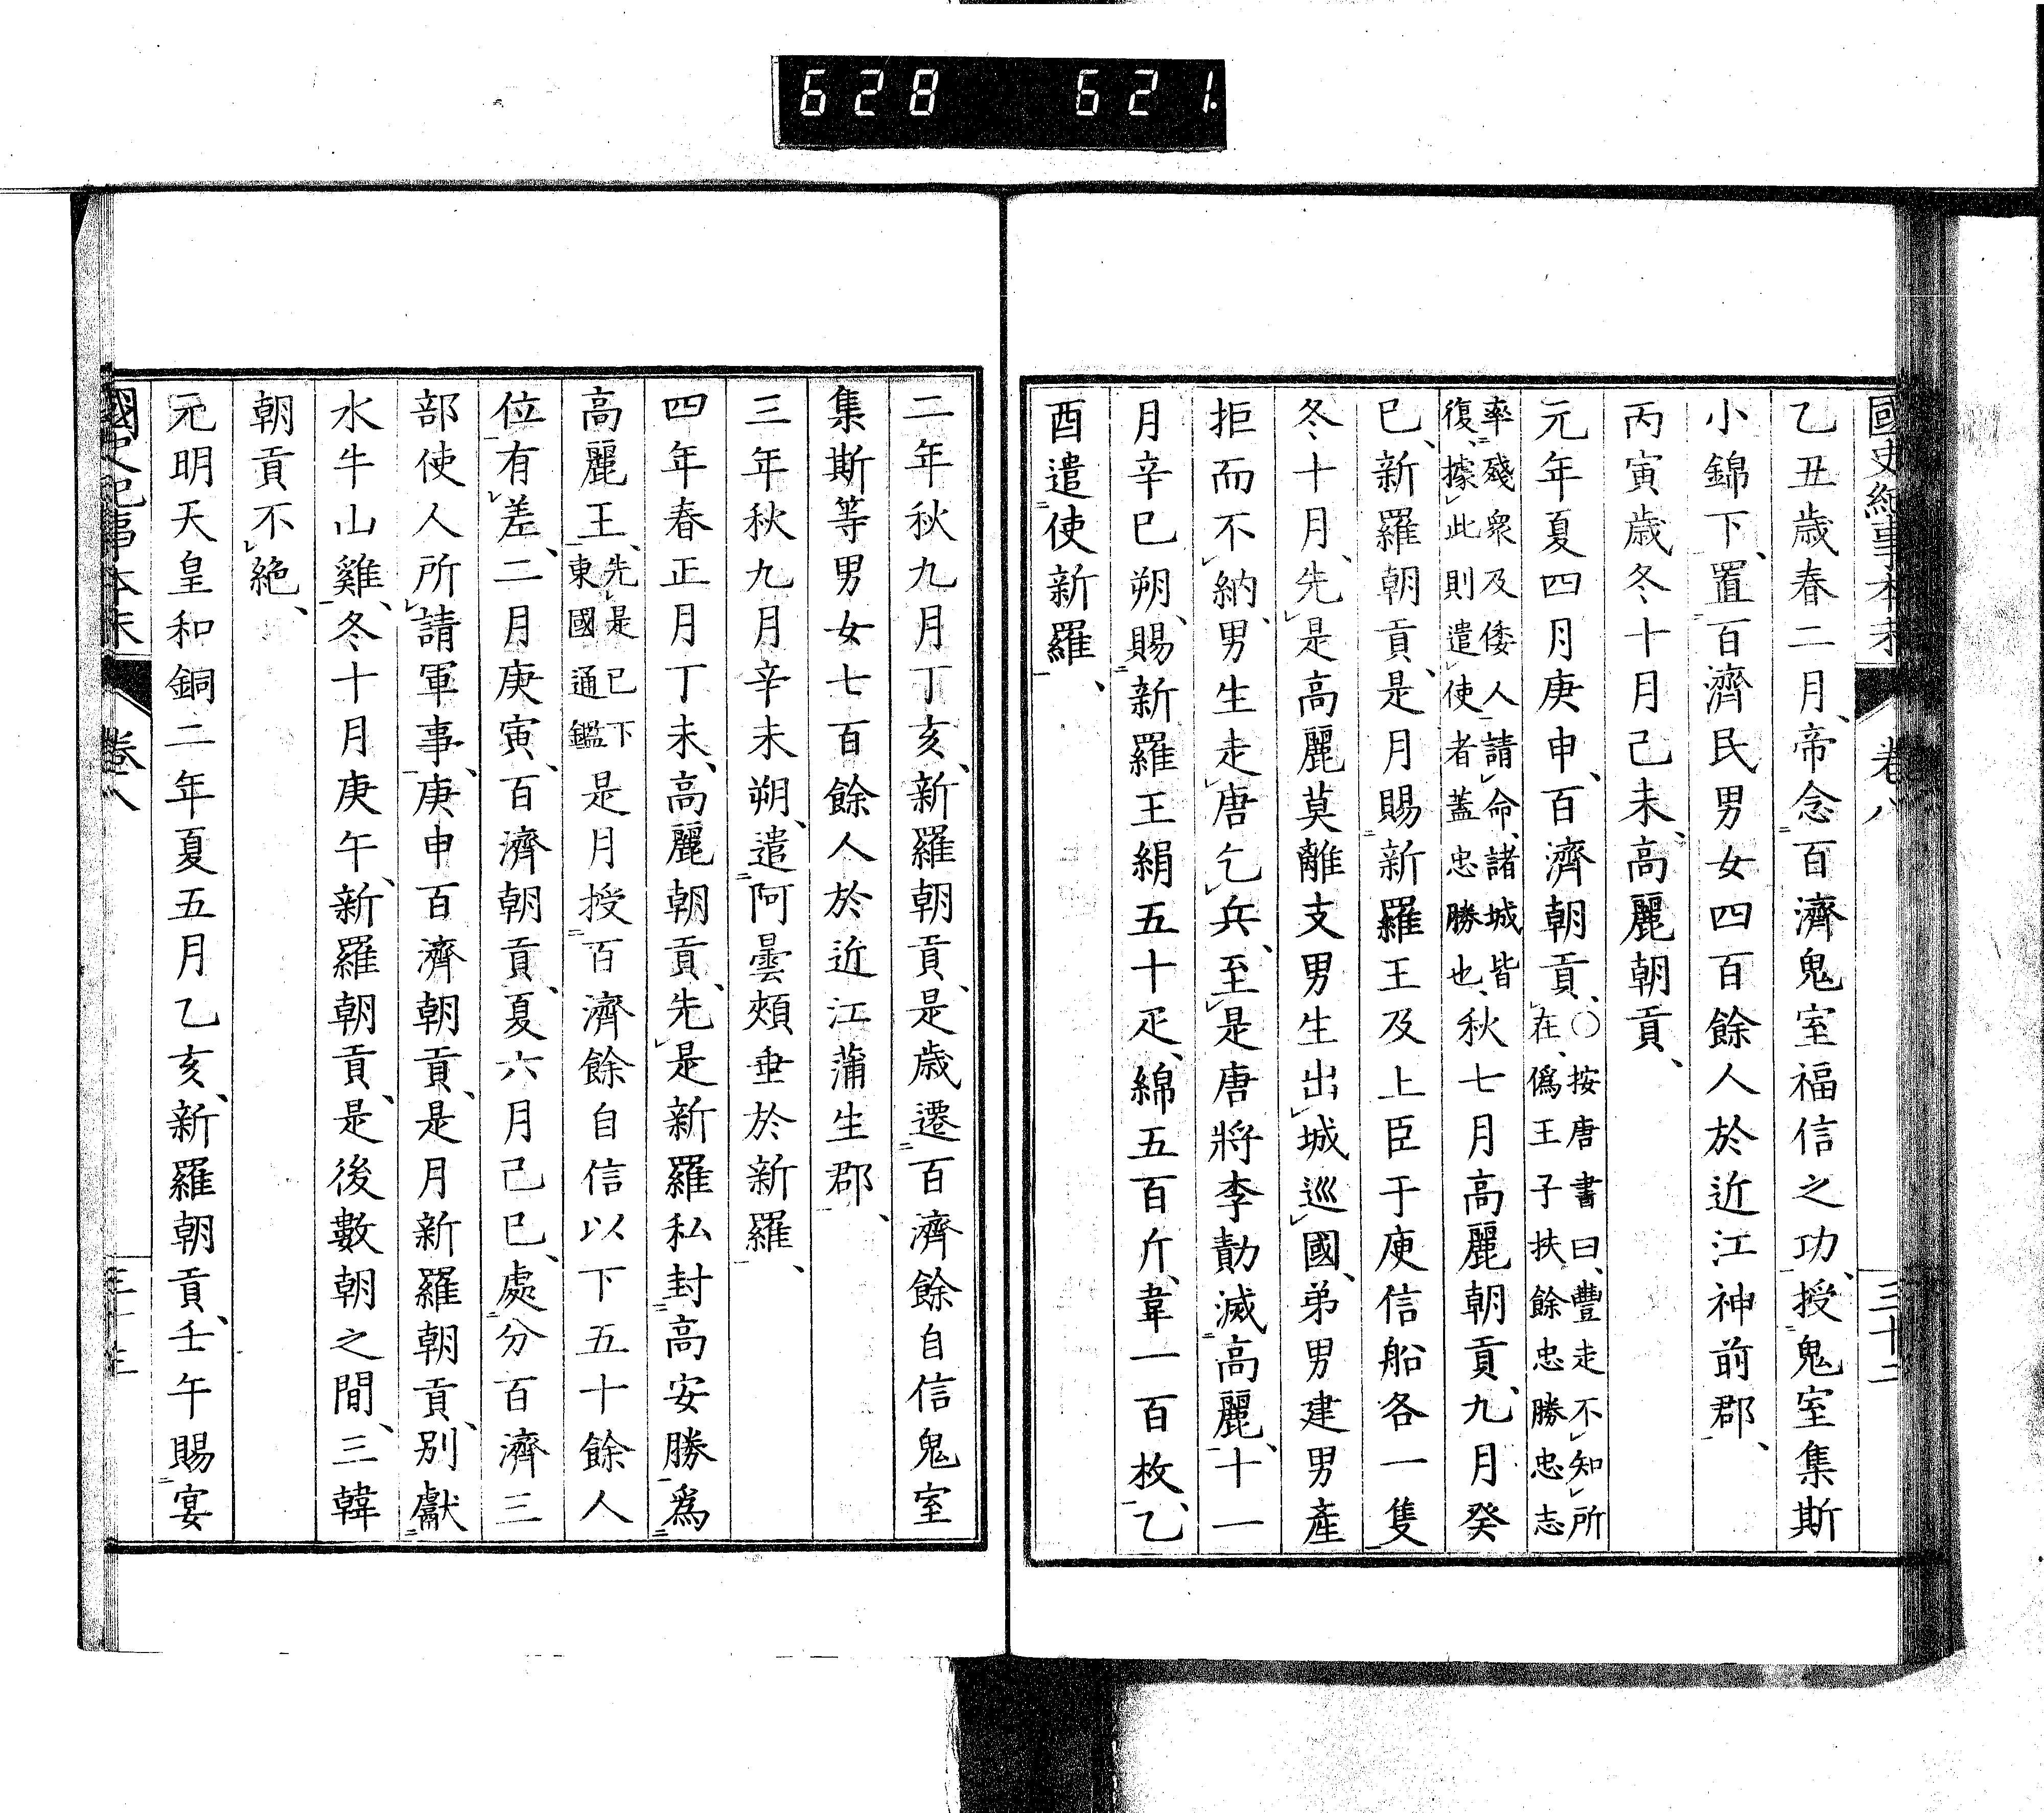 628 621
國史紀事本末 卷八 三十二
乙丑歳春二月、帝念百濟鬼室福信之功、授鬼室集斯
小錦下、置百濟民男女四百餘人於近江神前郡、
丙寅歳冬十月己未、高麗朝貢、
元年夏四月庚申、百濟朝貢、〇按唐書曰、豐走不知所
在、僞王子扶餘忠勝忠志
率殘衆及倭人請命、諸城皆
復、據此則遣使者蓋忠勝也、秋七月高麗朝貢、九月癸
巳、新羅朝貢、是月賜新羅王及上臣于庾信船各一隻
冬十月、先是高麗莫離支男生出城巡國、弟男建男產
拒而不納、男生走唐乞兵、至是唐將李勣滅高麗、十一
月辛巳朔、賜新羅王絹五十疋、綿五百斤、韋一百枚、乙
酉遣使新羅、
二年秋九月丁亥、新羅朝貢、是歳遷百濟餘自信鬼室
集斯等男女七百餘人於近江蒲生郡、
三年秋九月辛未朔、遣阿曇頰垂於新羅、
四年春正月丁未、高麗朝貢、先是新羅私封高安勝爲
高麗王、先是已下
東國通鑑是月授百濟餘自信以下五十餘人
位有差、二月庚寅、百濟朝貢、夏六月己巳、處分百濟三
部使人所請軍事、庚申百濟朝貢、是月新羅朝貢、別獻
水牛山雞、冬十月庚午、新羅朝貢、是後數朝之間、三韓
朝貢不絶、
元明天皇和銅二年夏五月乙亥、新羅朝貢、壬午賜宴
國史紀事本末 卷八 三十三